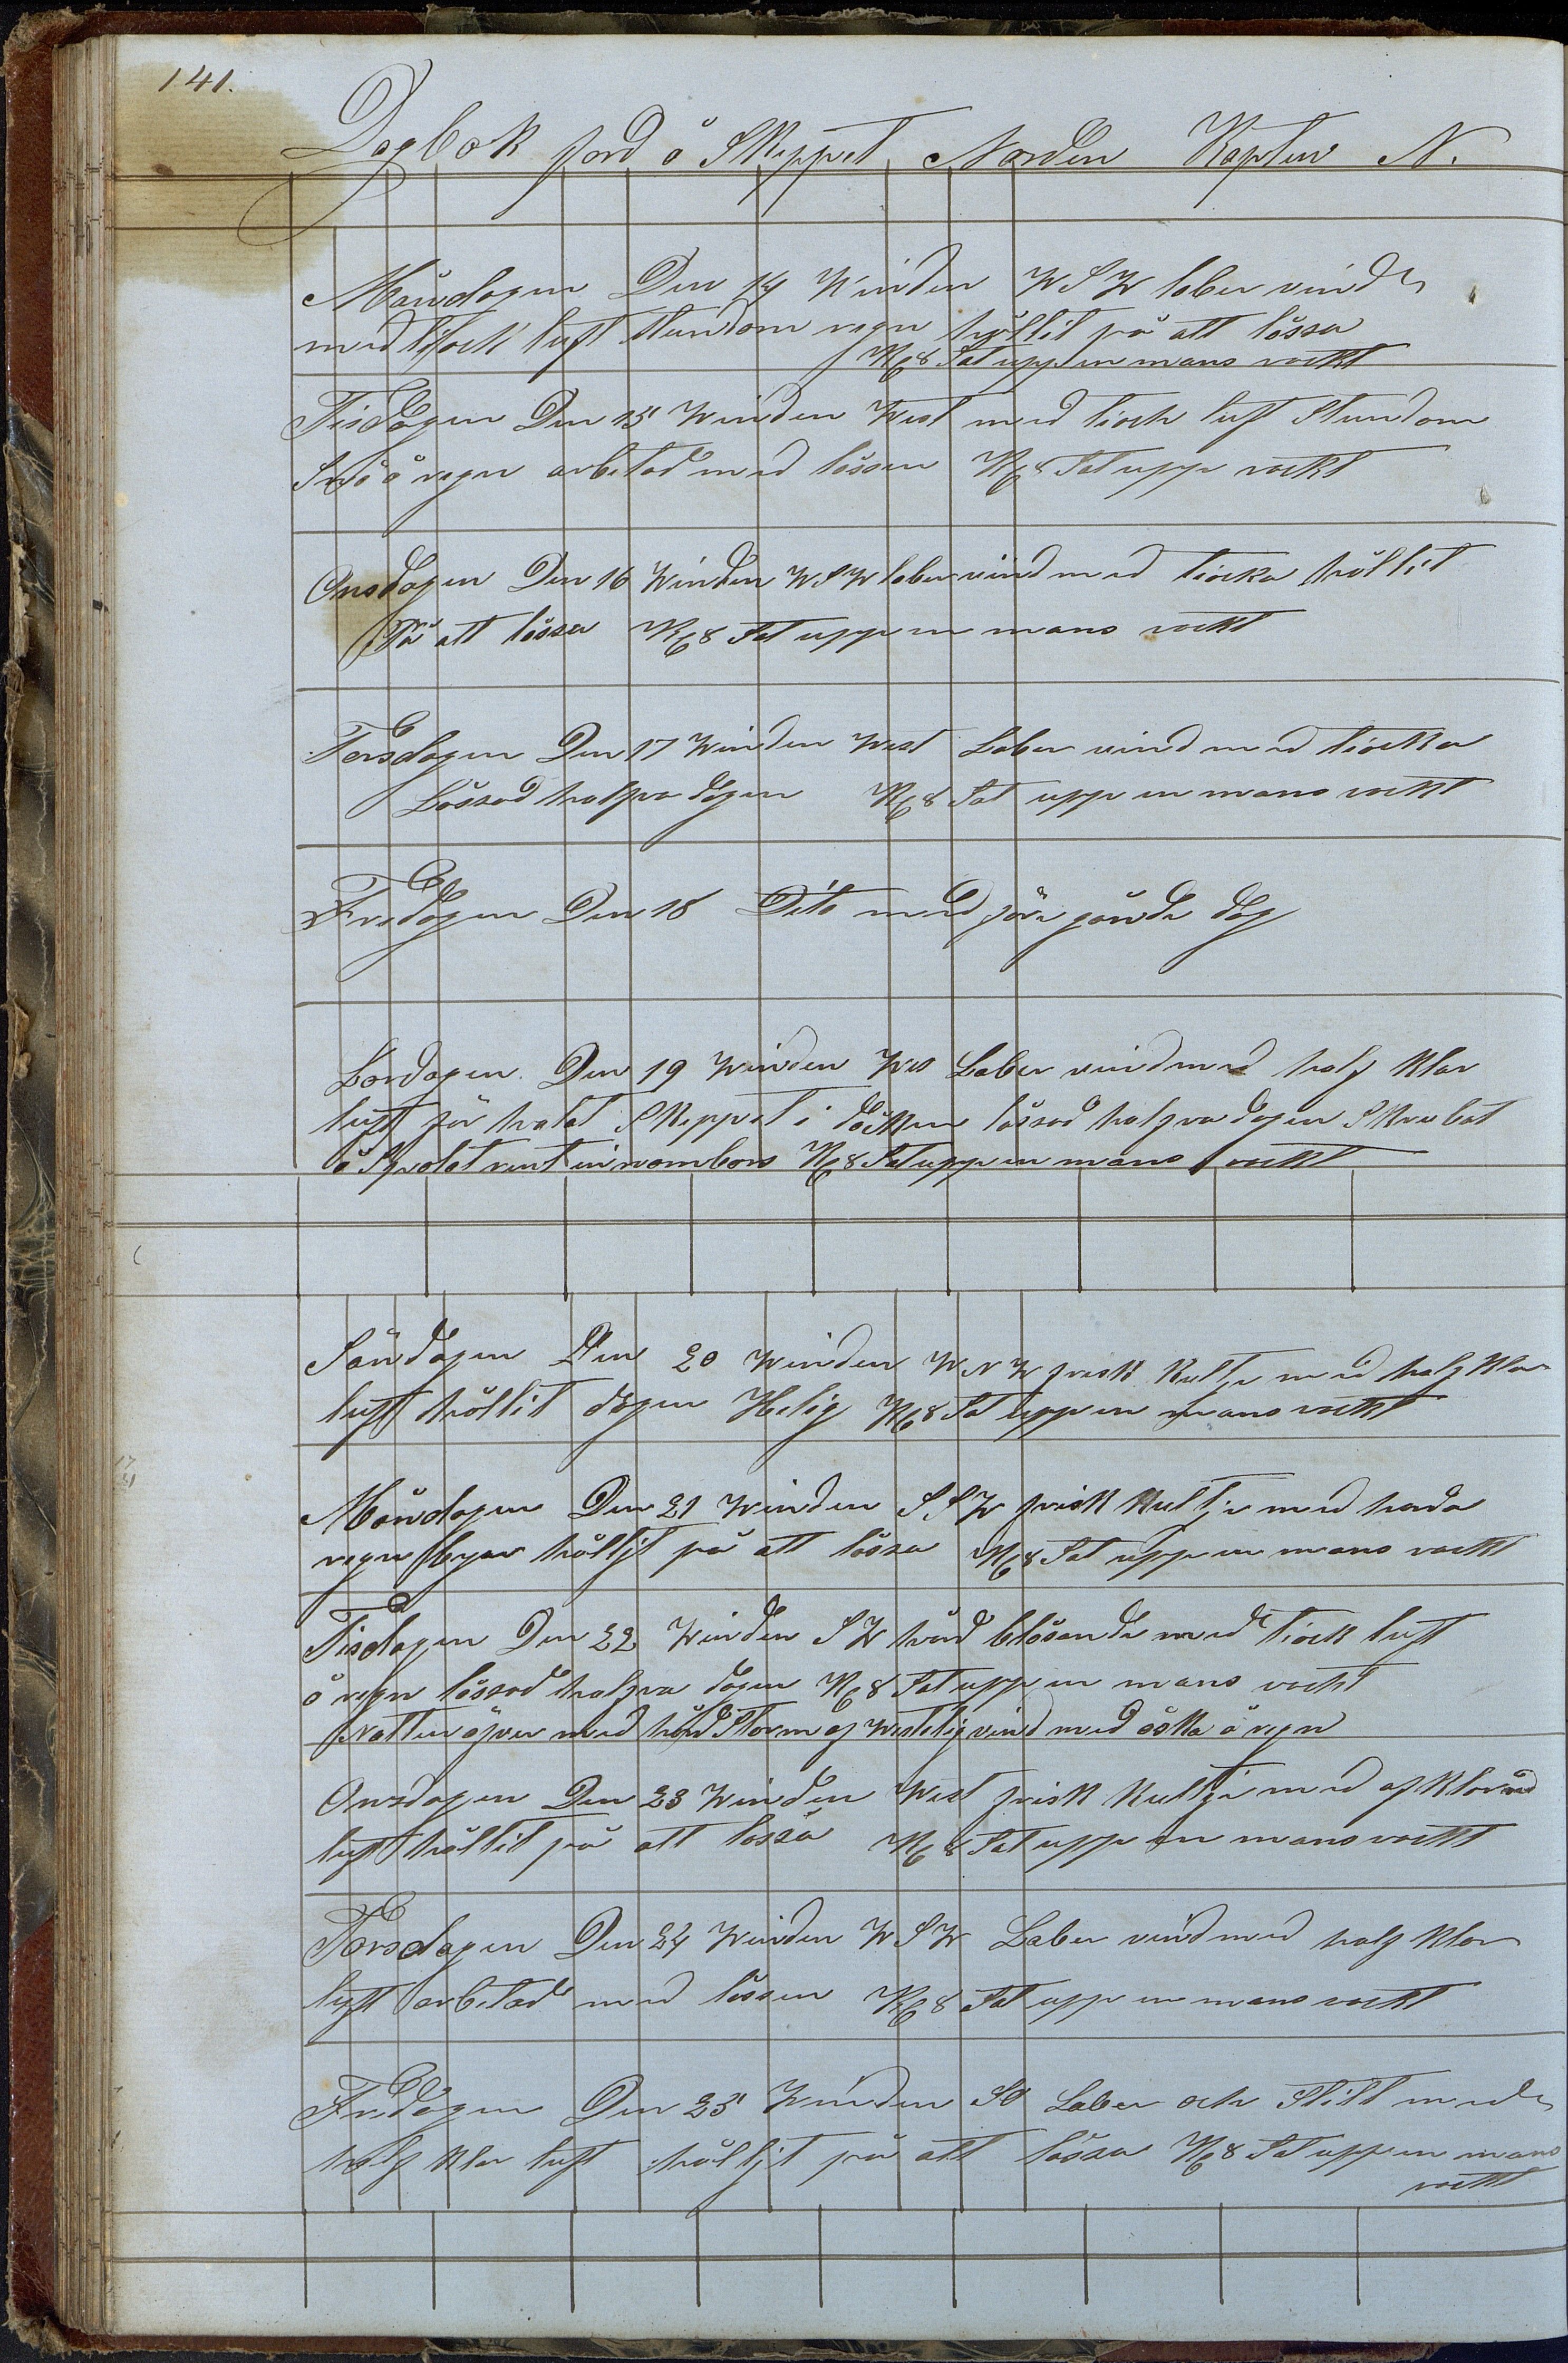 141.
Dagbok förd å Skeppet Norden Kapten N.
Måndagen Den 14 Winden WSW laber vind
med tjock luft stundom regn hållit på att lossa
Kl 8 Sat upp en mans vackt
Tisdagen Den 15 Winden West med tiock luft Stundom
å regn arbetad med lossen Kl 8 Sat upp vackt
Onsdagen Den 16 Winden WSW laber vind med tiocka hållit
På att lossa Kl 8 Sat upp en mans vackt
Torsdagen Den 17 Winden West Laber vind med tiocka
Lossad halfva dagen Kl 8 Sat upp en mans vackt
Fredagen Den 18 Dito med före gående dag
Lördagen Den 19 Winden Wes Laber vind med half klar
luft för halat Skeppet i dockan lossad halfva dagen Skrubat
å Spolat rent innombors Kl 8 Sat upp en mans vackt
Söndagen Den 20 Winden WNW frisk kultje med half klar
luft hållit dagen Helig Kl 8 Sat upp en mans vackt
Måndagen Den 21 Winden SSW frisk kultje med hårda
regn byar hålljt på att lossa Kl 8 Sat upp en mans vackt
Tisdagen Den 22 Winden SW hård blåsande med tiock luft
å regn lossad halfva dagen Kl 8 Sat upp en mans vackt
Natten öfver med hård Storm af Westelig vind med åska å regn
Onsdagen Den 23 Winden West frisk kultje med af klarad
luft hållit på att lossa Kl 8 Sat upp en mans vackt
Torsdagen Den 24 Winden WSW Laber vind med half klar
luft arbetad med lossen Kl 8 Sat upp en mans vackt
Fredagen Den 25 Winden SO Laber och Stilt med
half klar luft hålljt på att lossa Kl 8 Sat upp en mans
vackt